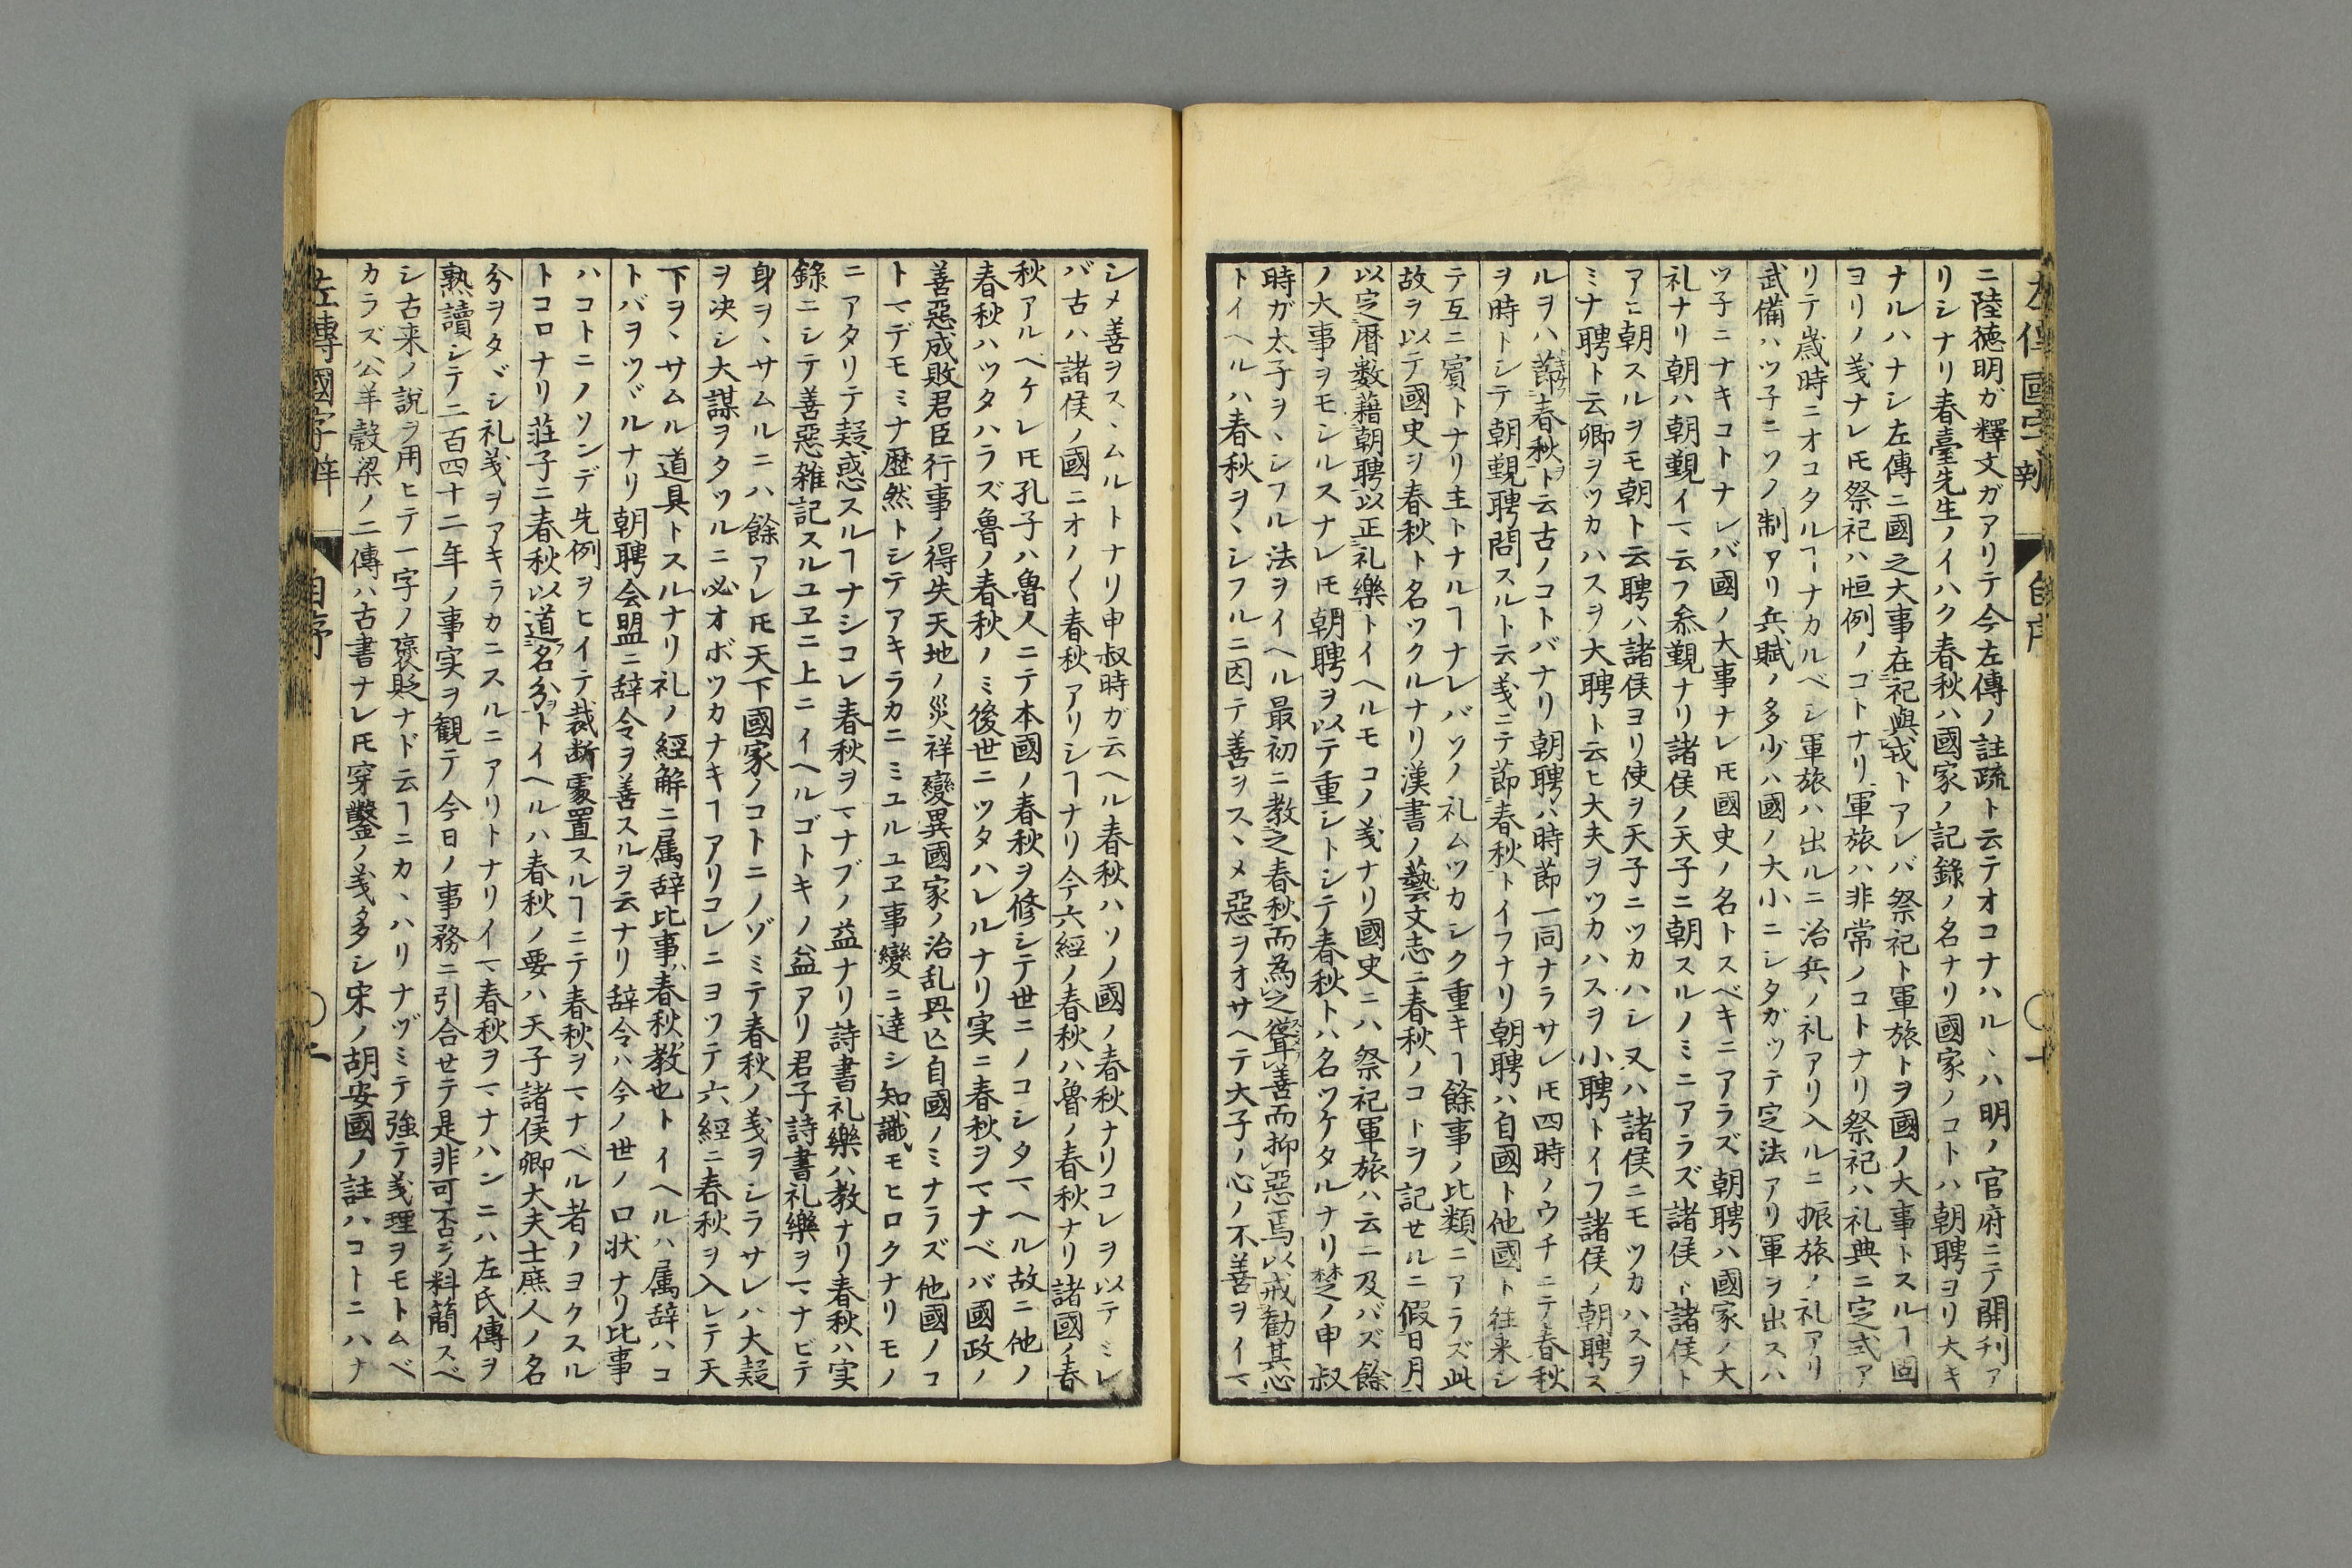 ニ陸徳明ガ釋文ガアリテ今左傳ノ註疏ト云テオコナハルヽハ明ノ官府ニテ開刋ア
リシナリ春臺先生ノイハク春秋ハ國家ノ記錄ノ名ナリ國家ノコトハ朝聘ヨリ大キ
ナルハナシ左傳ニ國之大事在祀與戎トアレバ祭祀ト軍旅トヲ國ノ大事トスルヿ固
ヨリノ義ナレㇳモ祭祀ハ恒例ノコトナリ軍旅ハ非常ノコトナリ祭祀ハ礼典ニ定式ア
リテ歳時ニオコタルヿナカルベシ軍旅ハ出ルニ治兵ノ礼アリ入ルニ振旅ノ礼アリ
武備ハツ子ニソノ制アリ兵賦ノ多少ハ國ノ大小ニシタガッテ定法アリ軍ヲ出スハ
ツ子ニナキコトナレバ國ノ大事ナレㇳモ國史ノ名トスベキニアラズ朝聘ハ國家ノ大
礼ナリ朝ハ朝覲イマ云フ叅覲ナリ諸侯ノ天子ニ朝スルノミニアラズ諸侯ト諸侯ト
アヒ朝スルヲモ朝ト云聘ハ諸侯ヨリ使ヲ天子ニツカハシ又ハ諸侯ニモツカハスヲ
ミナ聘ト云卿ヲツカハスヲ大聘ト云ヒ大夫ヲツカハスヲ小聘トイフ諸侯ノ朝聘ス
ルヲハ節春秋ト云古ノコトバナリ朝聘ハ時節一同ナラサレㇳモ四時ノウチニテ春秋
ヲ時トシテ朝覲聘問スルト云義ニテ節春秋トイフナリ朝聘ハ自國ト他國ト往来シ
テ互ニ賓トナリ主トナルヿナレバソノ礼ムツカシク重キヿ餘事ノ比類ニアラズ此
故ヲ以テ國史ヲ春秋ト名ツクルナリ漢書ノ藝文志ニ春秋ノコトヲ記セルニ假日月
以定暦数藉朝聘以正礼樂トイヘルモコノ義ナリ國史ニハ祭祀軍旅ハ云ニ及バズ餘
ノ大事ヲモシルスナレㇳモ朝聘ヲ以テ重シトシテ春秋トハ名ツケタルナリ楚ノ申叔
時ガ太子ヲヽシフル法ヲイヘル最初ニ教之春秋而為之聳善而抑惡焉以戒勸其心
トイヘルハ春秋ヲヽシフルニ因テ善ヲスヽメ惡ヲオサヘテ大子ノ心ノ不善ヲイマ
シメ善ヲスヽムルトナリ申叔時ガ云ヘル春秋ハソノ國ノ春秋ナリコレヲ以テミレ
バ古ハ諸侯ノ國ニオノ〱春秋アリシヿナリ今六經ノ春秋ハ魯ノ春秋ナリ諸國ノ春
秋アルベケレㇳモ孔子ハ魯人ニテ本國ノ春秋ヲ修シテ世ニノコシタマヘル故ニ他ノ
春秋ハツタハラズ魯ノ春秋ノミ後世ニツタハレルナリ実ニ春秋ヲマナベバ國政ノ
善惡成敗君臣行事ノ得失天地ノ災祥變異國家ノ治乱興亾自國ノミナラズ他國ノコ
トマデモミナ歴然トシテアキラカニミユルユヱ事變ニ達シ知識モヒロクナリモノ
ニアタリテ疑惑スルヿナシコレ春秋ヲマナブノ益ナリ詩書礼樂ハ教ナリ春秋ハ実
錄ニシテ善惡雑記スルユヱニ上ニイヘルゴトキノ益アリ君子詩書礼樂ヲマナビテ
身ヲヽサムルニハ餘アレㇳモ天下國家ノコトニノゾミテ春秋ノ義ヲシラサレハ大疑
ヲ决シ大謀ヲタツルニ必オボツカナキヿアリコレニヨツテ六經ニ春秋ヲ入レテ天
下ヲヽサムル道具トスルナリ礼ノ經解ニ属辞比事春秋教也トイヘルハ属辞ハコ
トバヲツヾルナリ朝聘会盟ニ辞令ヲ善スルヲ云ナリ辞令ハ今ノ世ノ口状ナリ比事
ハコトニノソンデ先例ヲヒイテ裁断處置スルヿニテ春秋ヲマナベル者ノヨクスル
トコロナリ莊子ニ春秋以道名分トイヘルハ春秋ノ要ハ天子諸侯卿大夫士庶人ノ名
分ヲタヾシ礼義ヲアキラカニスルニアリトナリイマ春秋ヲマナハンニハ左氏傳ヲ
熟讀シテ二百四十二年ノ事実ヲ観テ今日ノ事務ニ引合セテ是非可否ヲ料簡スベ
シ古来ノ說ヲ用ヒテ一字ノ褒貶ナド云ヿニカヽハリナヅミテ強テ義理ヲモトムベ
カラズ公羊穀梁ノ二傳ハ古書ナレㇳモ穿鑿ノ義多シ宋ノ胡安國ノ註ハコトニハナ
左傳國字辯
自序